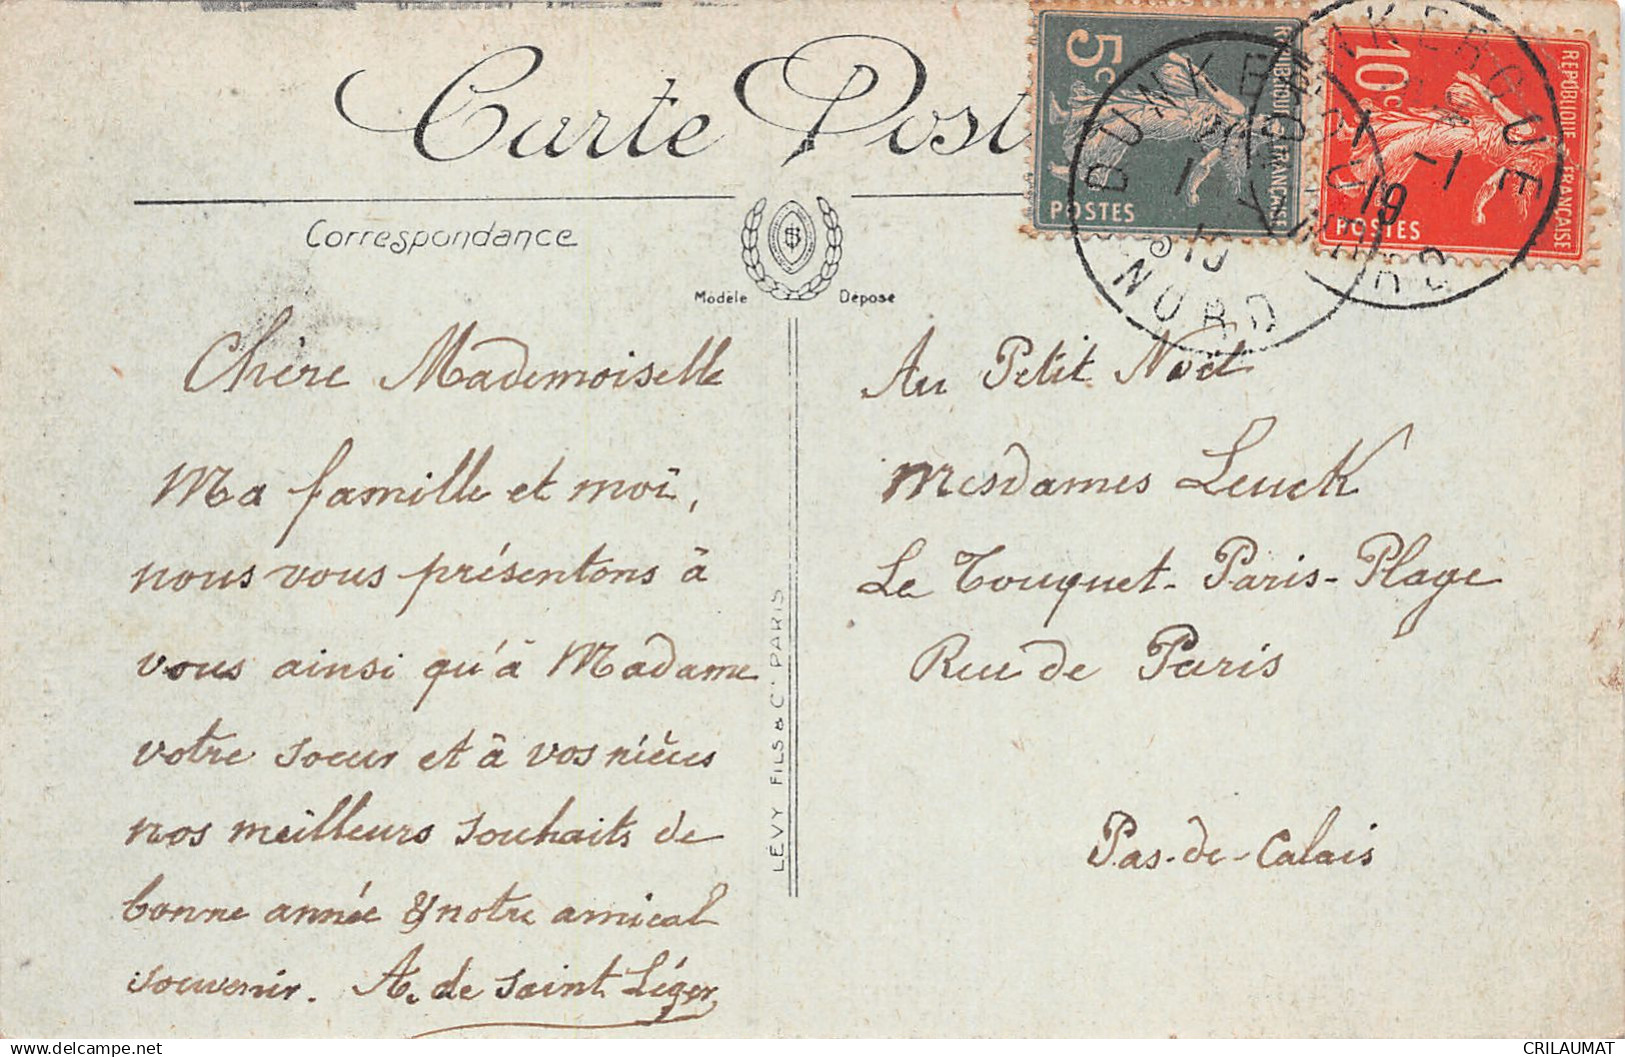 Carte Post
Correspondance
Modèle Déposé
5c
REPUBLIQUE FRANÇAISE
POSTES
10c
REPUBLIQUE FRANÇAISE
POSTES
DUNKERQUE
NORD
DUNKERQUE
NORD
Chère Mademoiselle
Ma famille et moi,
nous vous présentons à
vous ainsi qu'à Madame
votre soeur et à vos nièces
nos meilleurs souhaits de
bonne année & notre amical
souvenir. A. de Saint Léger
LÉVY FILS & Cie PARIS
Au Petit Noël
Mesdames Leuck
Le Touquet-Paris-Plage
Rue de Paris
Pas-de-Calais
CRILAUMAT